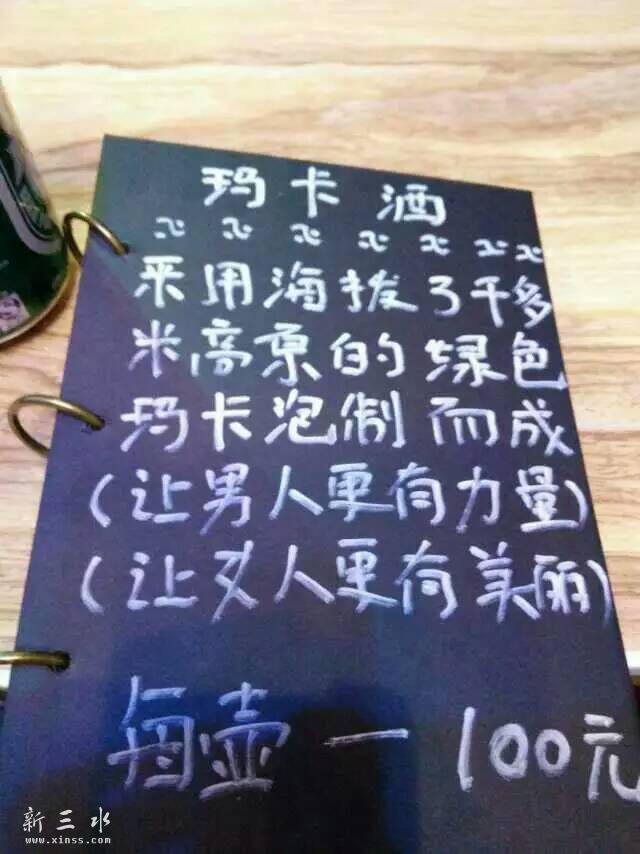 玛卡酒
采用海拔3千多
米高原的绿色
玛卡泡制而成
(让男人更有力量)
(让女人更有美丽)
每壶一100元
新三水
www.xinss.com